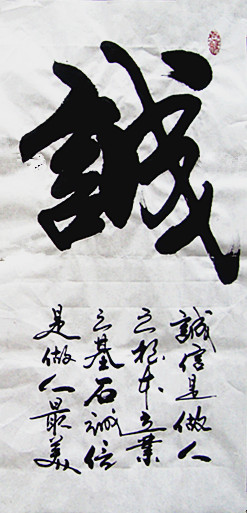 誠
誠信是做人
之根本立業
之基石誠信
是做人最美